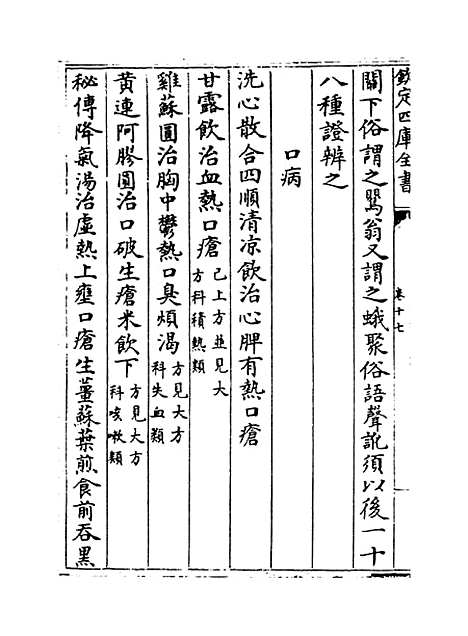 欽定四庫全書
卷十七
關下俗謂之鵞翁又謂之蛾聚俗語聲訛須以後一十
八種證辨之
口病
洗心散合四順清凉飲治心脾有熱口瘡
甘露飲治血熱口瘡已上方並見大
方科積熱類
雞蘇圓治胸中鬱熱口臭煩渴方見大方
科失血類
黄連阿膠圓治口破生瘡米飲下方見大方
科咳嗽類
秘傳降氣湯治虛熱上壅口瘡生薑蘇葉煎食前吞黑